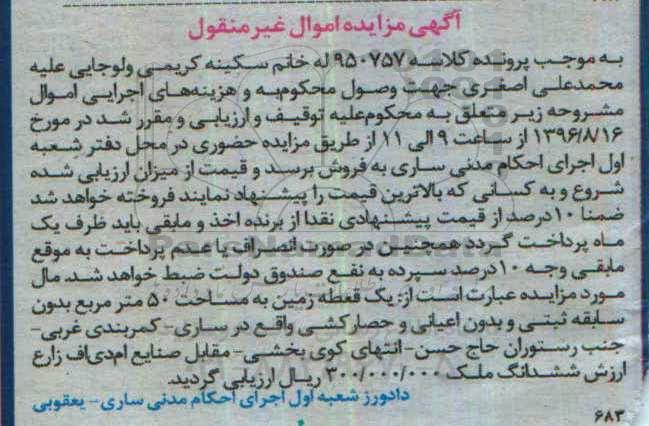 آگهی مزایده اموال غیر منقول
به موجب پرونده کلاسه ۹۵۰۷۵۷ له خانم سکینه کریمی ولوجایی علیه
محمدعلی اصغری جهت وصول محکوم‌به و هزینه‌های اجرایی اموال
مشروحه زیر متعلق به محکوم‌علیه توقیف و ارزیابی و مقرر شد در مورخ
۱۳۹۶/۸/۱۶ از ساعت ۹ الی ۱۱ از طریق مزایده حضوری در محل دفتر شعبه
اول اجرای احکام مدنی ساری به فروش برسد و قیمت از میزان ارزیابی شده
شروع و به کسانی که بالاترین قیمت را پیشنهاد نمایند فروخته خواهد شد
ضمنا ۱۰درصد از قیمت پیشنهادی نقدا از برنده اخذ و مابقی باید ظرف یک
ماه پرداخت گردد همچنین در صورت انصراف یا عدم پرداخت به موقع
مابقی وجه ۱۰درصد سپرده به نفع صندوق دولت ضبط خواهد شد. مال
مورد مزایده عبارت است از: یک قطعه زمین به مساحت ۵۰ متر مربع بدون
سابقه ثبتی و بدون اعیانی و حصارکشی واقع در ساری- کمربندی غربی-
جنب رستوران حاج حسن- انتهای کوی بخشی- مقابل صنایع ام‌دی‌اف زارع
ارزش ششدانگ ملک ۳۰۰/۰۰۰/۰۰۰ ریال ارزیابی گردید.
دادورز شعبه اول اجرای احکام مدنی ساری- یعقوبی
۶۸۳